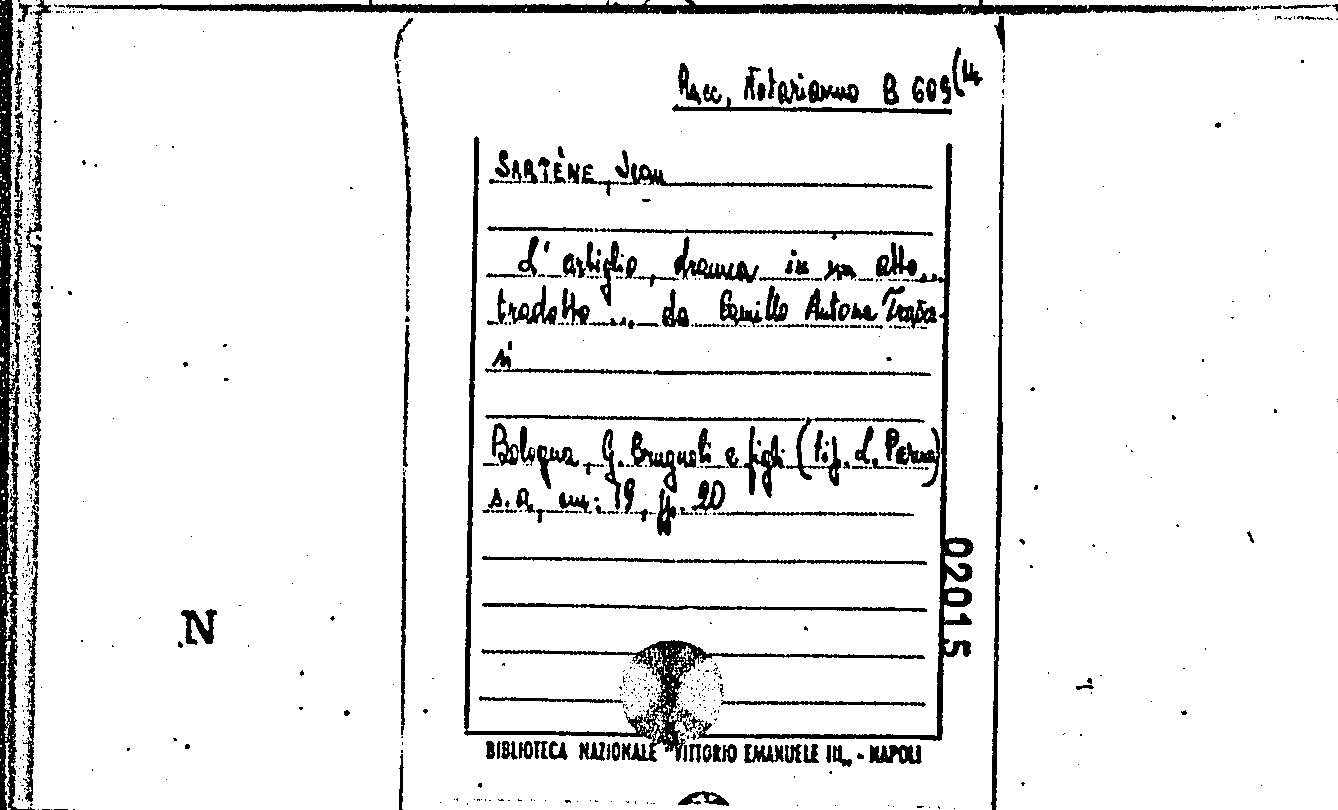 Racc. Notarianno B 609 (4
SARTÈNE, Jean
L' artiglio, dramma in un atto...
tradotto ... da Camillo Antona Traver-
si
Bologna, G. Brugnoli e figli (tip. L. Parma)
s. a., cm: 19, pp. 20
02015
N
BIBLIOTECA NAZIONALE "VITTORIO EMANUELE III" - NAPOLI